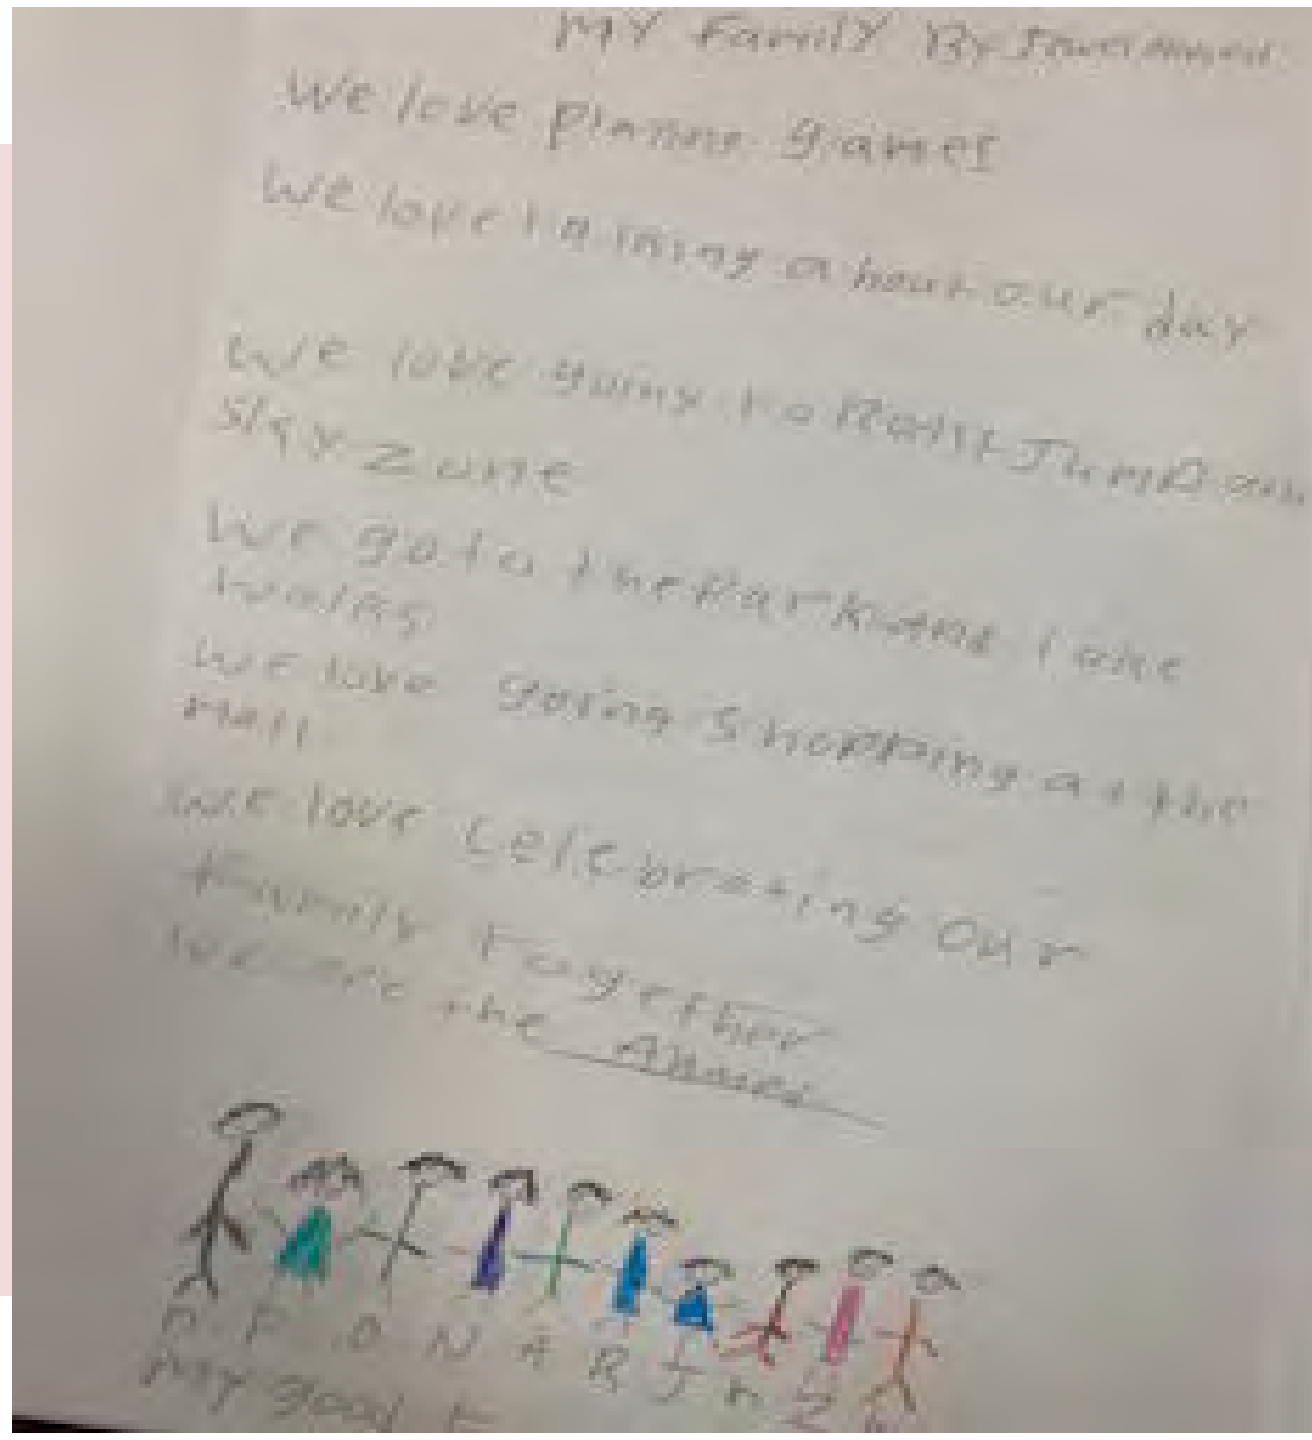 MY Family By
We love games
We love about our day
We love going to Jump
Sky Zone
We go to the Park and take
walks
We love going shopping at the
Mall
We love celebrating our
Family together
we are the
D F D N A R J
My good